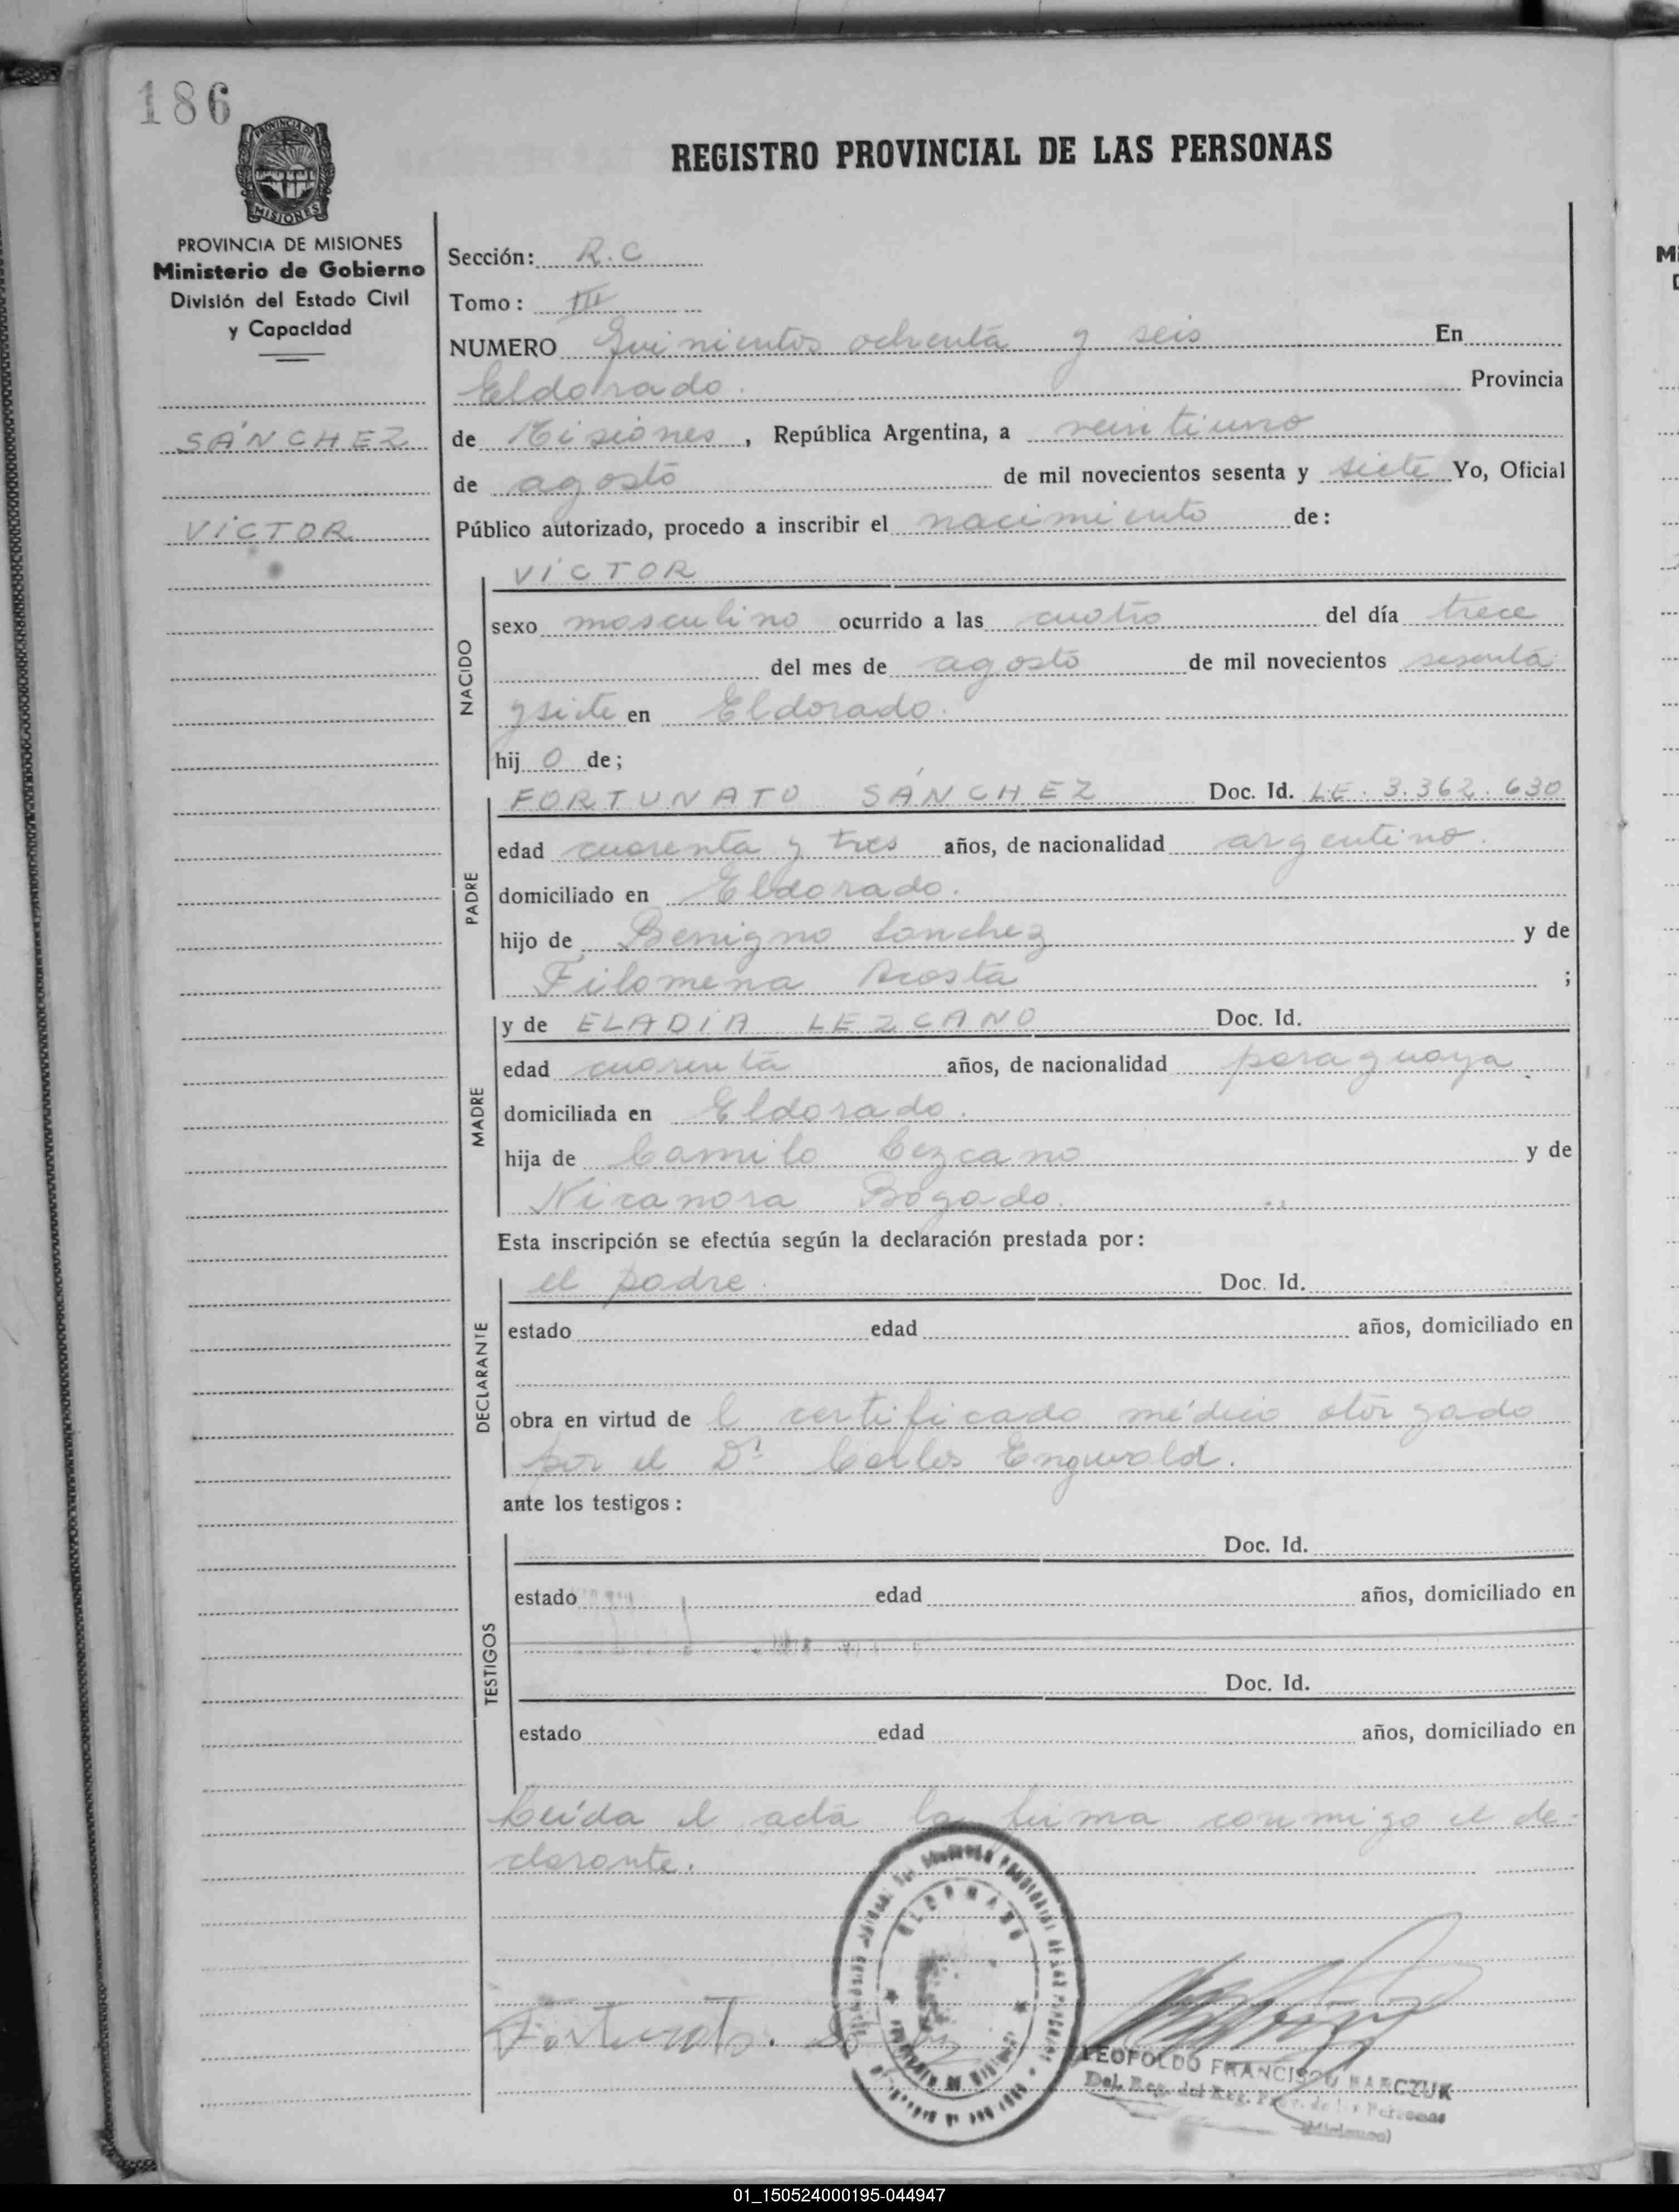 186
PROVINCIA DE
MISIONES
REGISTRO PROVINCIAL DE LAS PERSONAS
PROVINCIA DE MISIONES
Ministerio de Gobierno
División del Estado Civil
y Capacidad
SÁNCHEZ
VÍCTOR
Sección: R.C
Tomo: III
NUMERO Quinientos ochenta y seis En
Eldorado. Provincia
de Misiones, República Argentina, a veintiuno
de agosto de mil novecientos sesenta y siete Yo, Oficial
Público autorizado, procedo a inscribir el nacimiento de:
NACIDO
VÍCTOR
sexo masculino ocurrido a las cuatro del día trece
del mes de agosto de mil novecientos sesenta
y siete en Eldorado.
hij o de;
PADRE
FORTUNATO SÁNCHEZ Doc. Id. LE. 3.362.630
edad cuarenta y tres años, de nacionalidad argentino.
domiciliado en Eldorado.
hijo de Benigno Sanchez y de
Filomena Acosta ;
MADRE
y de ELADIA LEZCANO Doc. Id.
edad cuarenta años, de nacionalidad paraguaya.
domiciliada en Eldorado.
hija de Camilo Lezcano y de
Nicanora Bogado.
Esta inscripción se efectúa según la declaración prestada por:
DECLARANTE
el padre. Doc. Id.
estado edad años, domiciliado en
obra en virtud de l certificado médico otorgado
por el Dr. Carlos Enguvald.
ante los testigos:
TESTIGOS
Doc. Id.
estado edad años, domiciliado en
Doc. Id.
estado edad años, domiciliado en
Leída el acta la firma conmigo el de-
clarante.
ELDORADO
Fortunato. Sánchez
LEOPOLDO FRANCISCO MARCZUK
Del. Reg. del Reg. Prov. de las Personas
(Misiones)
01_150524000195-044947